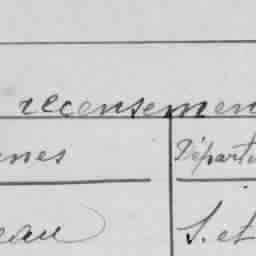 recensemen
nes Départe
eau S. et